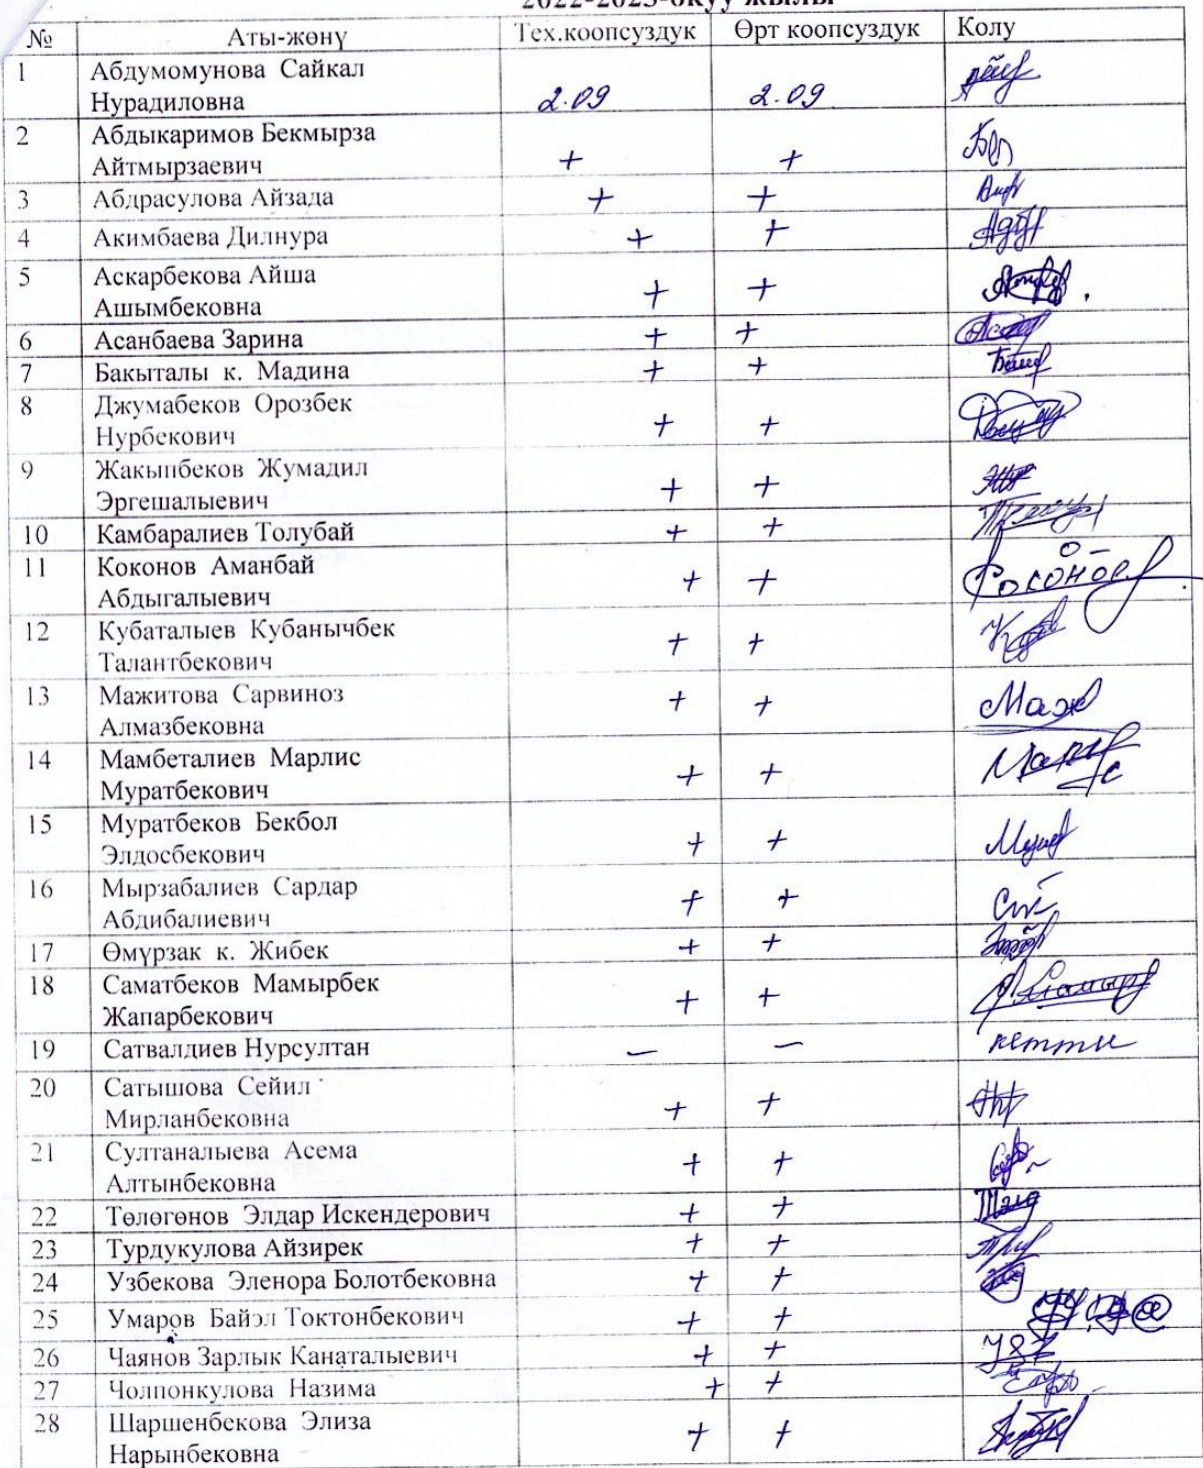 2022-2023-окуу жылы
№ Аты-жөнү Тех.коопсуздук Өрт коопсуздук Колу
1 Абдумомунова Сайкал
Нурадиловна 2.09 2.09
2 Абдыкаримов Бекмырза
Айтмырзаевич + +
3 Абдрасулова Айзада + +
4 Акимбаева Дилнура + +
5 Аскарбекова Айша
Ашымбековна + +
6 Асанбаева Зарина + +
7 Бакыталы к. Мадина + +
8 Джумабеков Орозбек
Нурбекович + +
9 Жакыпбеков Жумадил
Эргешалыевич + +
10 Камбаралиев Толубай + +
11 Коконов Аманбай
Абдыгалыевич + +
12 Кубаталыев Кубанычбек
Талантбекович + +
13 Мажитова Сарвиноз + + Маж
Алмазбековна
14 Мамбеталиев Марлис
Муратбекович + +
15 Муратбеков Бекбол
Элдосбекович + +
16 Мырзабалиев Сардар
Абдибалиевич + +
17 Өмүрзак к. Жибек + +
18 Саматбеков Мамырбек
Жапарбекович + +
19 Сатвалдиев Нурсултан − − кетти
20 Сатышова Сейил
Мирланбековна + +
21 Султаналыева Асема
Алтынбековна + +
22 Төлөгөнов Элдар Искендерович + +
23 Турдукулова Айзирек + +
24 Узбекова Эленора Болотбековна + +
25 Умаров Байэл Токтонбекович + +
26 Чаянов Зарлык Канаталыевич + +
27 Чолпонкулова Назима + +
28 Шаршенбекова Элиза
Нарынбековна + +